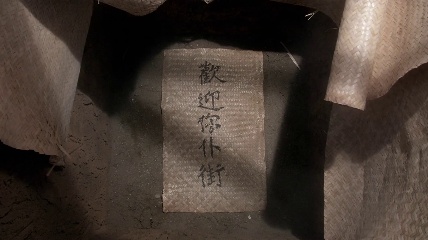 歡迎你仆街